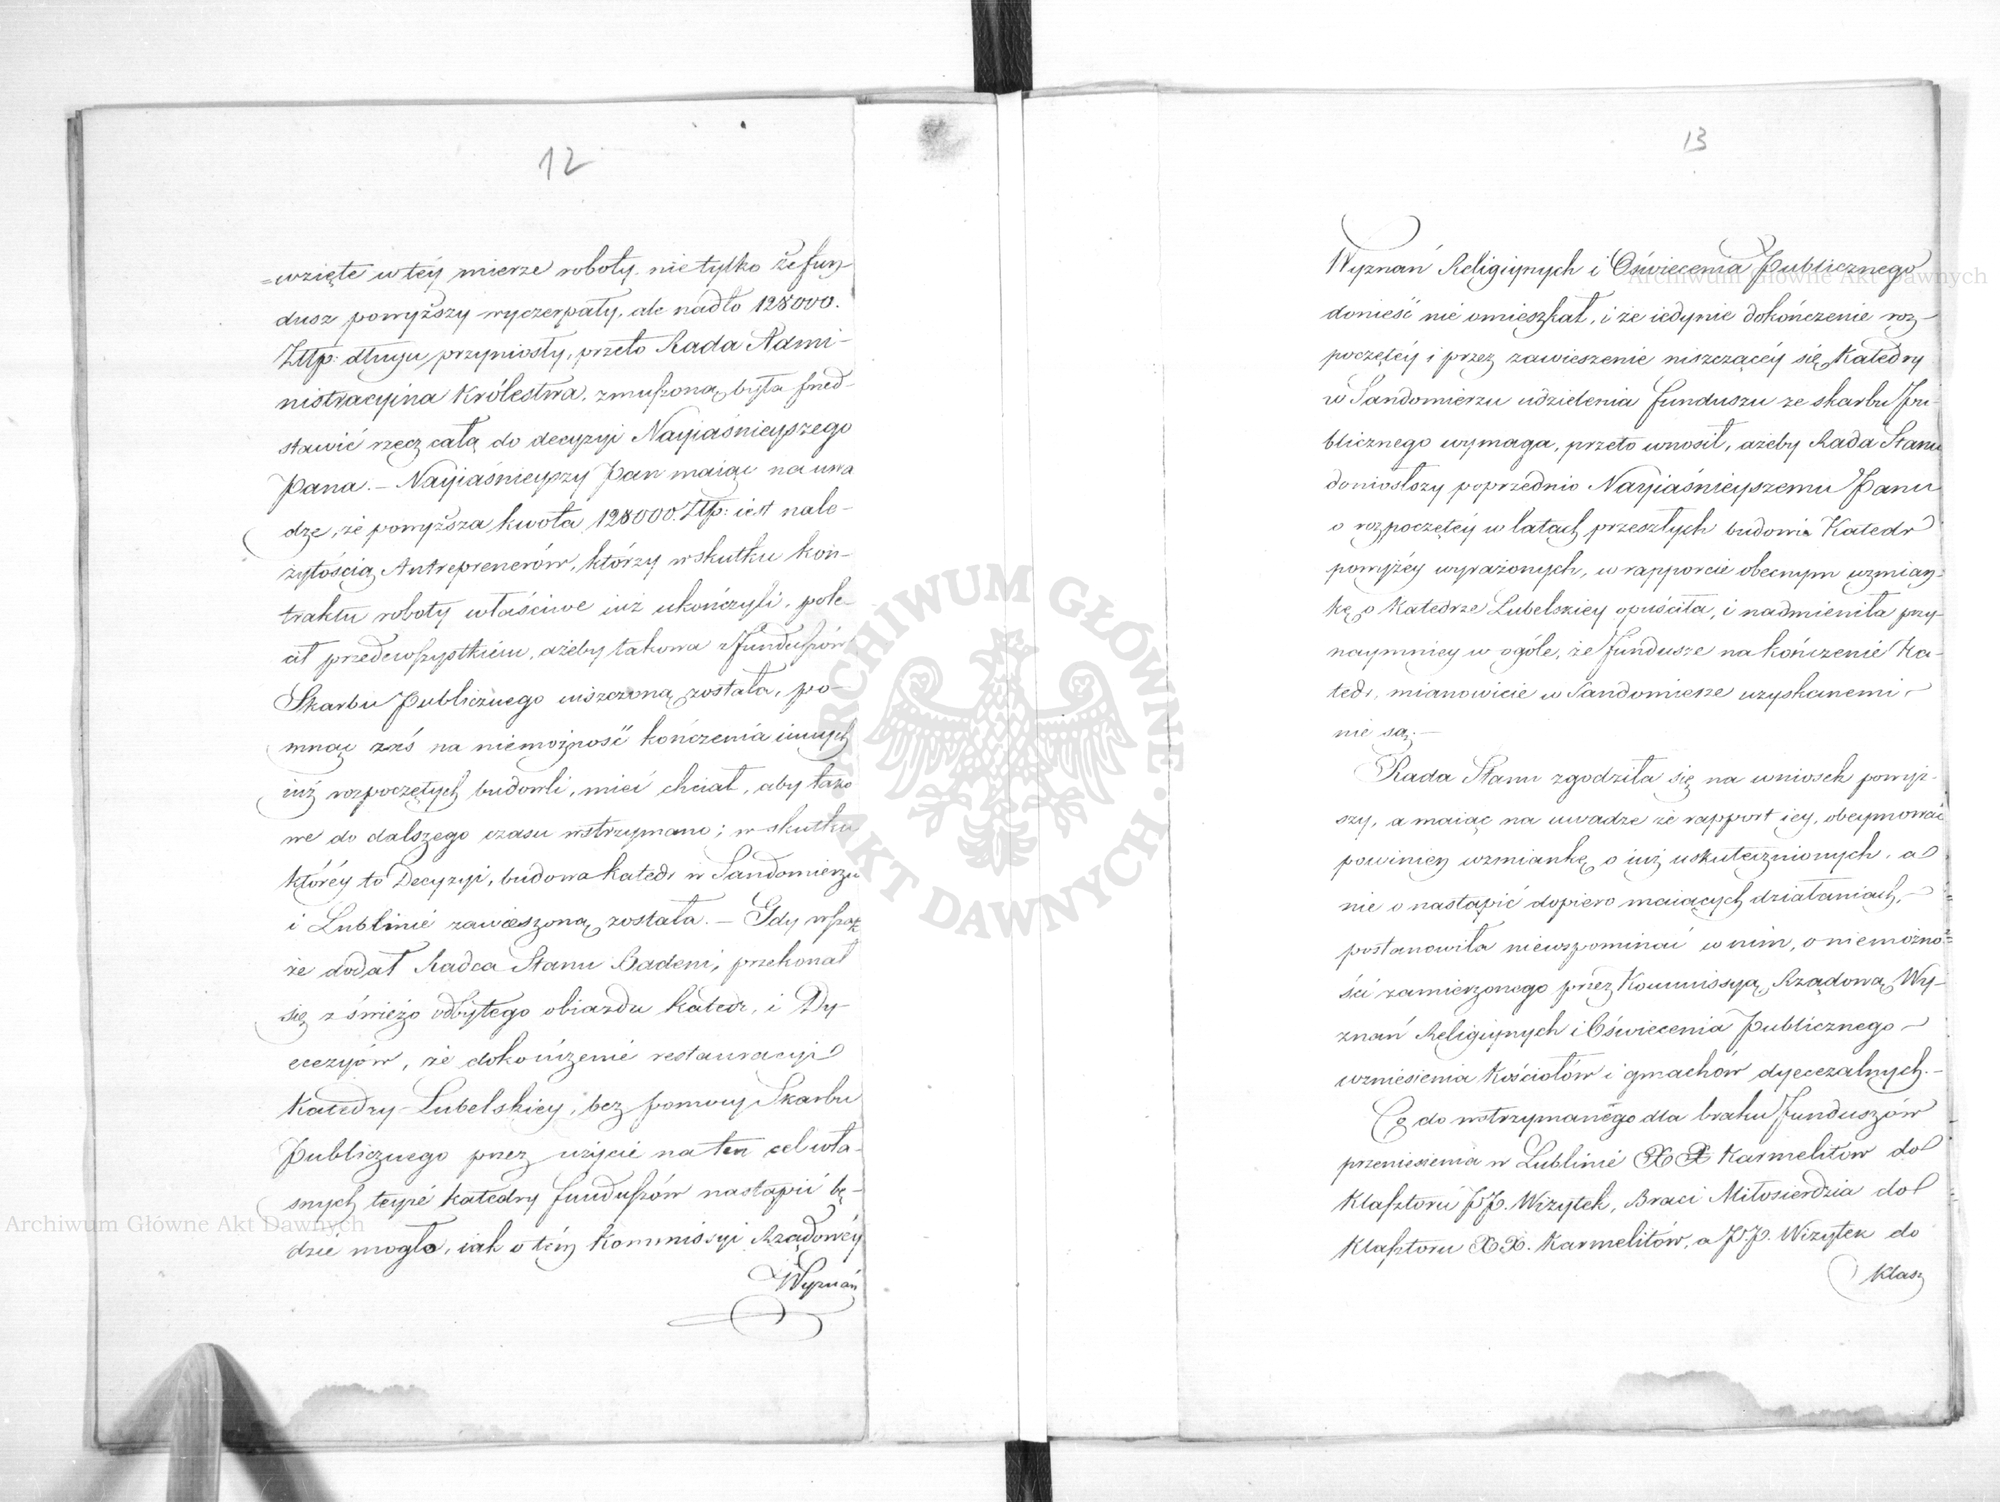 12
=wzięte w téy mierze roboty, nie tylko że fun-
dusz powyższy wyczerpały, ale nadto 128000.
Złłp: długu przyniosły, przeto Rada Admi-
nistracyina Królestwa, zmuszoną była przed-
stawić rzecz całą do decyzyi Nayiaśnieyszego
Pana. — Nayiaśnieyszy Pan maiąc na uwa
dze, że powyższa kwota 128000. Złłp: iest nale-
żytością Antreprenerów, którzy w skutku kon-
traktu roboty właściwe iuż ukończyli, pole-
cił przedewszystkiem, ażeby takowa z funduszów
Skarbu Publicznego uiszczoną została, po-
mnąc zaś na niemożność kończenia innych
iuż rozpoczętych budowli, mieć chciał, aby tako
we do dalszego czasu wstrzymano; w skutku
któréy to Decyzyi, budowa katedr w Sandomierzu
i Lublinie zawieszoną została. — Gdy wszak
że dodał Radca Stanu Badeni, przekonał
się z świéżo odbytego obiazdu katedr, i Dy-
ecezyów, że dokończenie restauracyi
Katedry Lubelskiey, bez pomocy Skarbu
Publicznego przez użycie na ten cel wła-
snych teyże katedry funduszów nastąpić bę-
dzie mogło, iak o tém Kommissyi Rządowéy
Wyznań
13
Wyznań Religiynych i Oświecenia Publicznego
donieść nie omieszkał, i że iedynie dokończenie roz-
poczętéy i przez zawieszenie niszczącéy się Katedry
w Sandomierzu udzielenia funduszu ze skarbu Pu-
blicznego wymaga, przeto wnosił, ażeby Rada Stanu
doniosłszy poprzednio Nayiaśnieyszemu Panu
o rozpoczętéy w latach przeszłych budowie Katedr
powyżéy wyrażonych, w rapporcie obecnym wzmian-
kę o Katedrze Lubelskiey opuściła, i nadmieniła przy-
naymniey w ogóle, że fundusze na kończenie Ka-
tedr, mianowicie w Sandomierze uzyskanemi
nie są. —
Rada Stanu zgodziła się na wniosek powyż-
szy, a maiąc na uwadze że rapport iey, obeymować
powinien wzmiankę o iuż uskutecznionych, a
nie o nastąpić dopiero maiących działaniach, —
postanowiła niewspominać w nim, o niemożno-
ści zamierzonego przez Kommissyą Rządową Wy-
znań Religiynych i Oświecenia Publicznego —
wzniesienia Kościołów i gmachów dyecezalnych. —
Co do wstrzymanego dla braku funduszów
przeniesienia w Lublinie XX Karmelitów do
Klasztoru PP. Wizytek, Braci Miłosierdzia do
Klasztoru XX. Karmelitów, a P.P. Wizytek do
Klasz
Archiwum Główne Akt Dawnych
Archiwum Główne Akt Dawnych
ARCHIWUM GŁÓWNE AKT DAWNYCH